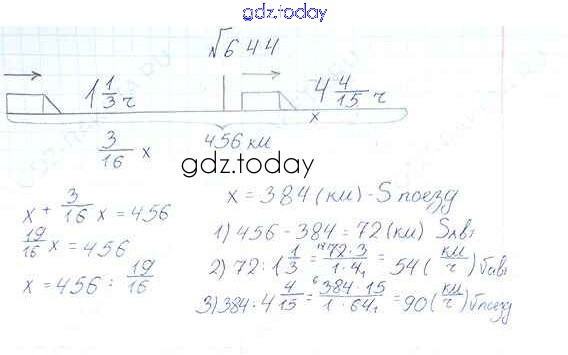 gdz.today
№644
1 1/3 ч
4 4/15 ч
x
3/16 x
456 км
gdz.today
x + 3/16 x = 456
19/16 x = 456
x = 456 : 19/16
x = 384 (км) - S поезд
1) 456 - 384 = 72 (км) S авт
2) 72 : 1 1/3 = 72·3/1·4 = 54 (км/ч) v авт
3) 384 : 4 4/15 = 384·15/1·64 = 90 (км/ч) v поезд